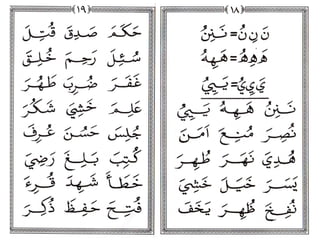 (١٨)
نَ نِ نُ = نَنِنُ
هَ هِ هُ = هَهِهُ
يَ يِ يُ = يَيِيُ
نَنِنُ هَهِهُ يَيِيُ
نُصِرَ مُنِعَ اَمَنَ
هُدِيَ نَهَرَ ظُهِرَ
يَسَرَ خَيَلَ خَشِيَ
نُفِخَ ظُهِرَ يَخَفَ
(١٩)
حَكَمَ صَدِقَ قُتِلَ
سُئِلَ رَحِمَ خُلِقَ
غَفَرَ ضُرِبَ طَهُرَ
عَلِمَ خَشِيَ شَكُرَ
جُلِسَ حَسُنَ عُرِفَ
كُتِبَ بَلَغَ رَضِيَ
خَطَأَ شَهِدَ قُرِءَ
فُتِحَ حَفِظَ ذُكِرَ